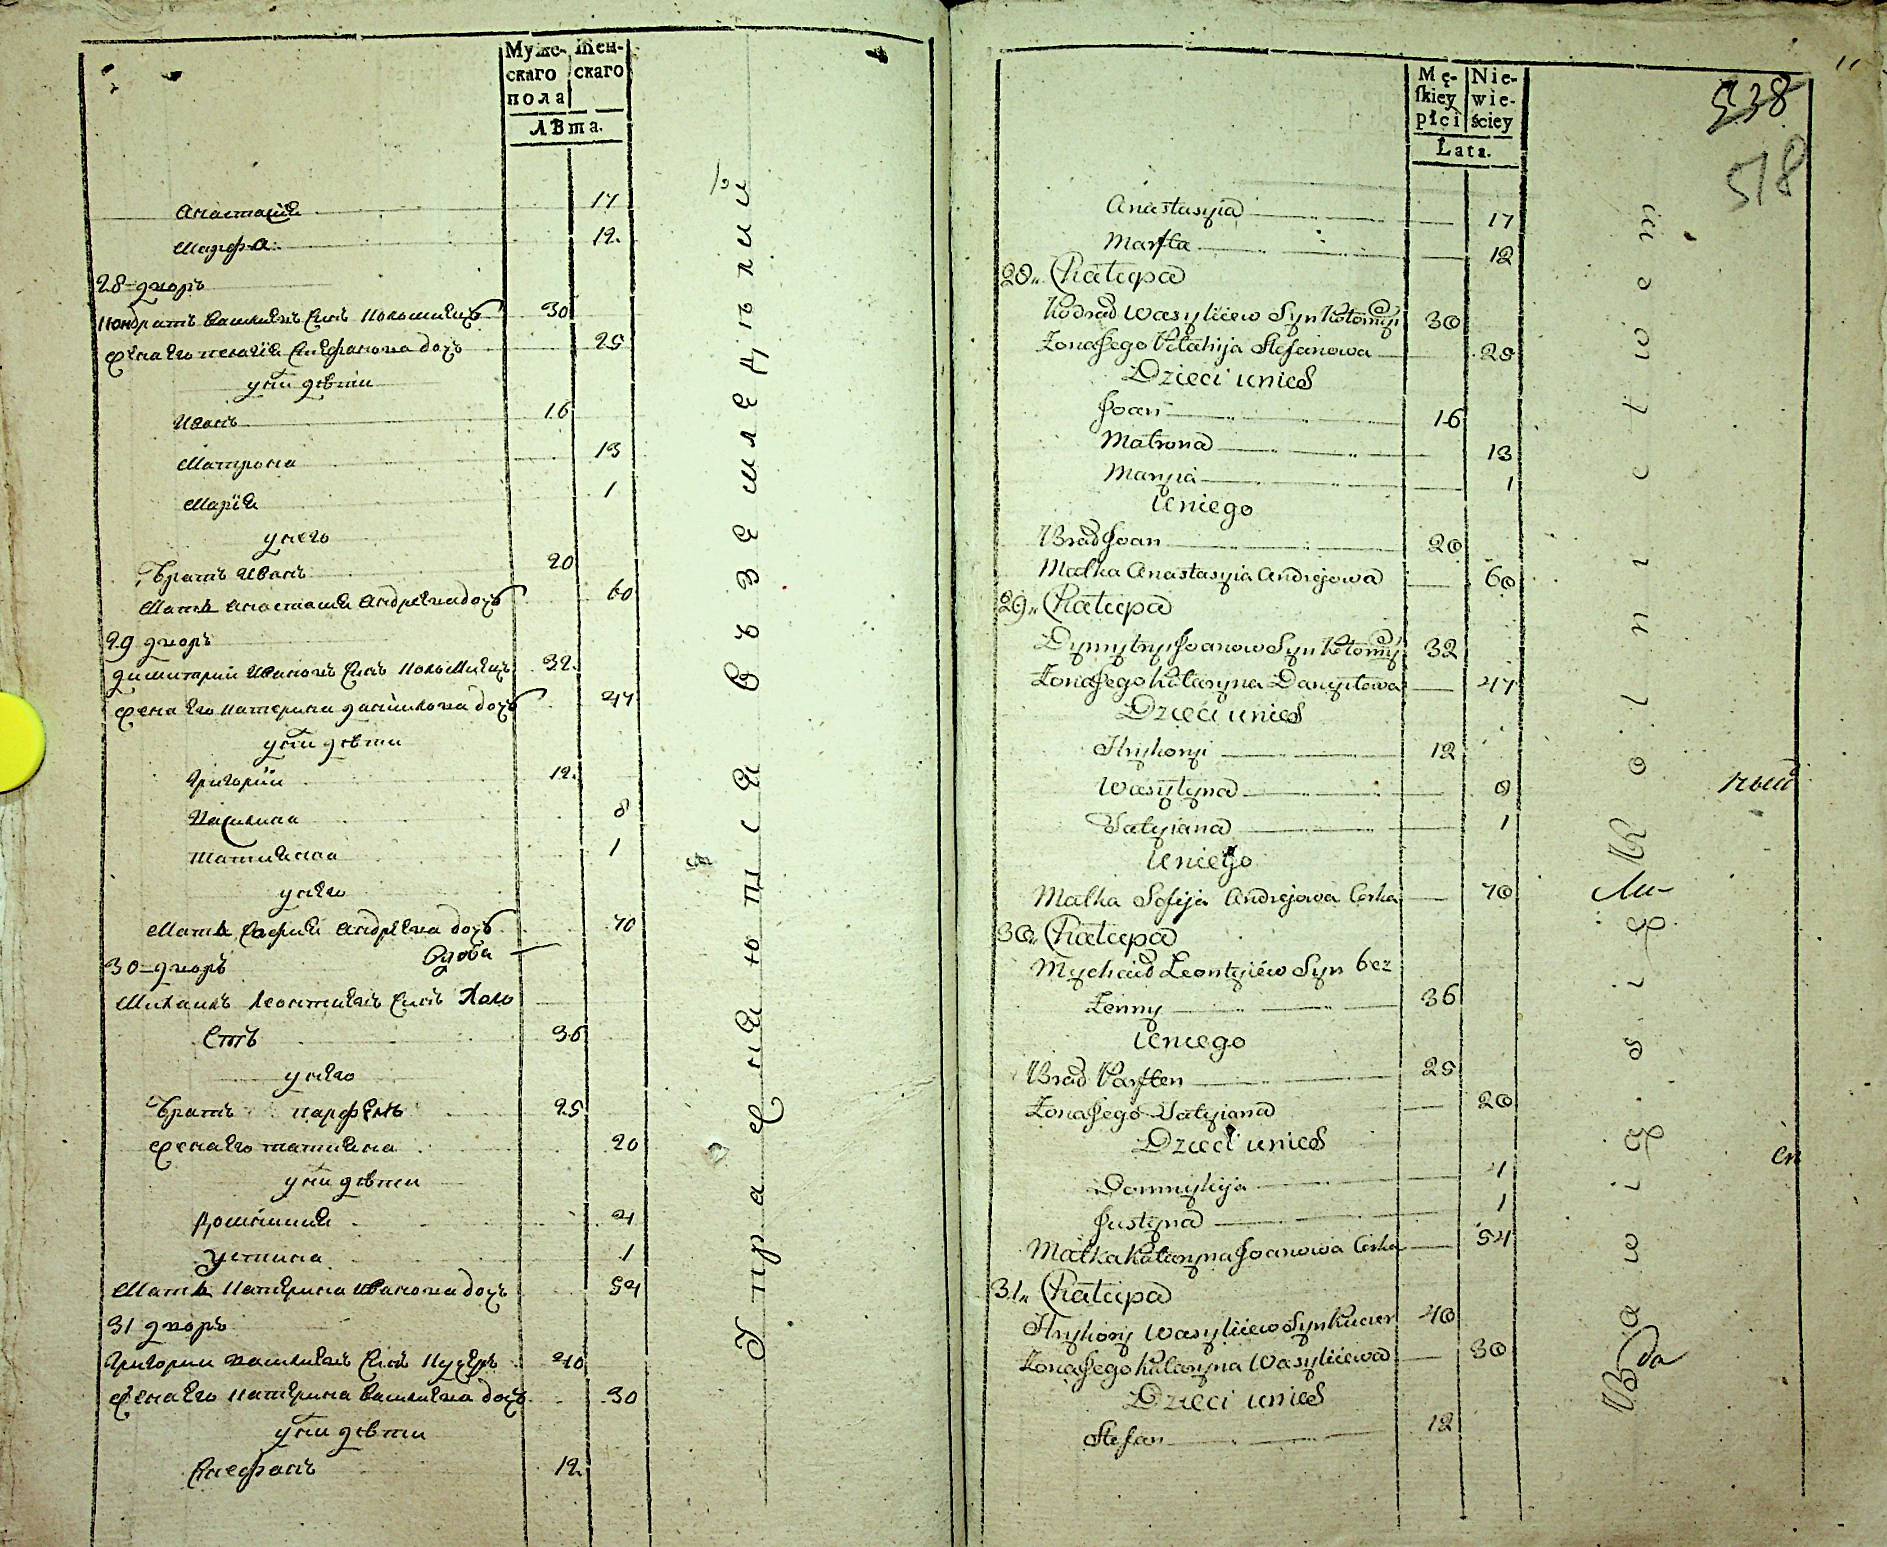 Муже-
скаго
пола
Жен-
скаго
Лѣта.
Анастасия 17
Марфа 12.
28 дворъ
Кондратъ Василиевъ Синъ Коломиецъ 30
Жена Его Пелагия Стефанова дочъ 25
у них дѣти
Иванъ 16
Матрона 13
Мария 1
у него
Братъ Иванъ 20
Мать Анастасия Андреева дочъ 60
29 дворъ
Димитрий Ивановъ Синъ Коломиецъ 32.
Жена Его Катерина Даниилова дочъ 27
у них дѣти
Григорий 12.
Василина 8
Татияна 1
у него
Мать София Андреева дочъ 70
Вдова
30 дворъ
Михаилъ Леонтиевъ Синъ Холо
Стъ 36
у него
Братъ Парфенъ 25
Жена Его Татияна 20
у них дѣти
Домникия 4
Устина 1
Мать Катерина Иванова дочъ 54
31 дворъ
Григорий Василиевъ Синъ Кучеръ 40
Жена Его Катерина Василиева дочъ 30
у них дѣти
Стефанъ 12.
Упражняются в земледѣлии
Mę-
skiey
płci
Nie-
wie-
ściey
Lata.
538
518
Anastasyia 17
Marfta 12
28. Chałupa
Kodrad Wasyliiew Syn Kołomyi 30
Żona Jego Pelahija Stefanowa 25
Dzieci u nich
Joan 16
Matrona 13
Maryia 1
U niego
Brad Joan 20
Matka Anastasyia Andrejowa 60
29. Chałupa
Dymytryi Joanow Syn Kołomyi 32
Żona Jego Kataryna Danyłowa 27
Dzieci u nich
Hryhoryi 12
Wasylyna 8
Tatyiana 1
U niego
Matka Sofija Andrejowa Corka 70
30. Chałupa
Mychaid Leontyiew Syn bez
Żenny 36
U niego
Brad Parften 25
Żona Jego Tatyiana 20
Dzieci u nich
Domnykija 4
Justyna 1
Matka Kataryna Joanowa Corka 54
31. Chałupa
Hryhory Wasyliiew Syn Kuczer 40
Żona Jego Kataryna Wasyliiewa 30
Dzieci u nich
Stefan 12
Bawią się Rolnictwem